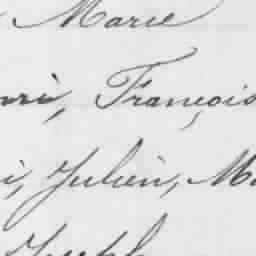 Marie
nri, François
i, Julien, M
Joseph